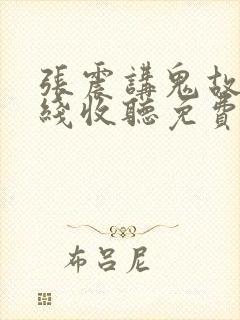 張震講鬼故
綫收聽免費
布呂尼